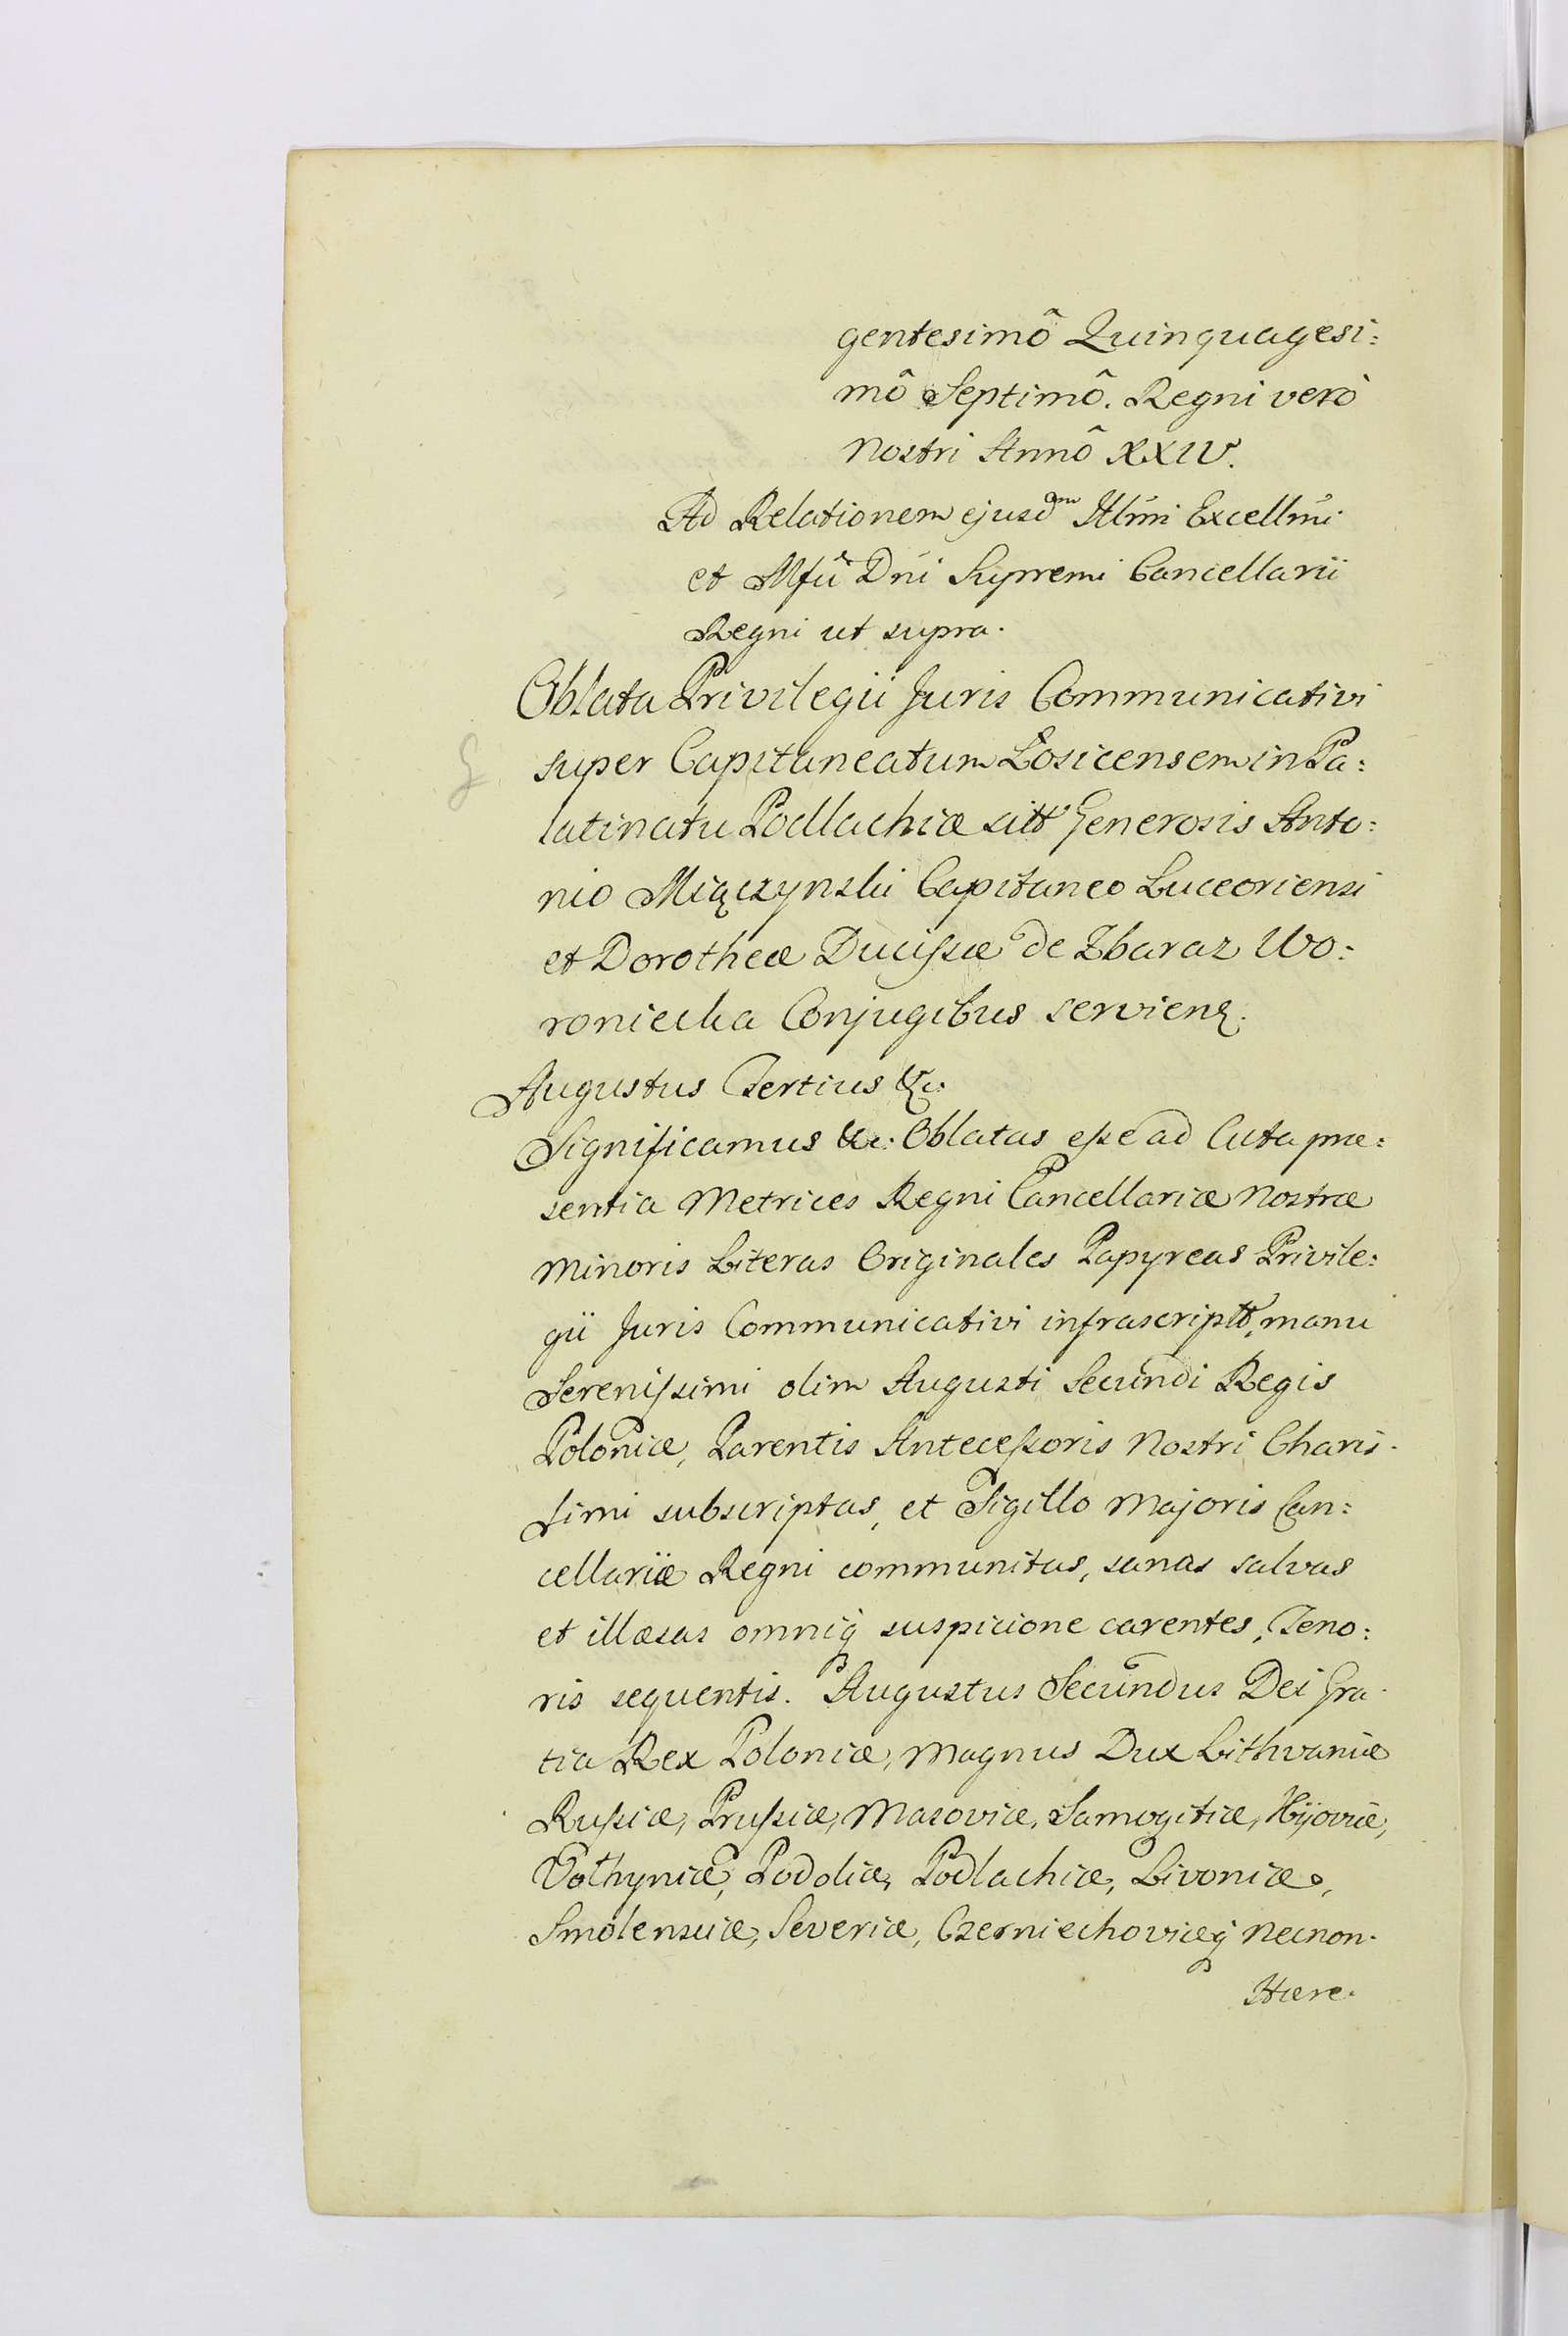 gentesimô Quinquagesi:
mô Septimô. Regni verò
Nostri Annô XXIV.
Ad Relationem ejusdm Illmi Excellmi
et Mfci Dni Supremi Cancellarii
Regni ut supra.
Oblata Privilegii Juris Communicativi
super Capitaneatum Łosicensem in Pa:
latinatu Podlachiæ sitt Generosis Anto:
nio Miączynski Capitaneo Luceoriensi
et Dorotheæ Ducissæ de Zbaraz Wo:
roniecka Conjugibus servien.
Augustus Tertius &c.
Significamus &c. Oblatas esse ad Acta præ:
sentia Metrices Regni Cancellariæ Nostræ
Minoris Literas Originales Papyreas Privile:
gii Juris Communicativi infrascriptt, manu
Serenissimi olim Augusti Secundi Regis
Poloniæ, Parentis Antecessoris Nostri Charis-
simi subscriptas, et Sigillo Majoris Can:
cellariæ Regni communitas, sanas salvas
et illæsas omniq suspicione carentes, Teno:
ris sequentis. Augustus Secundus Dei Gra-
tia Rex Poloniæ, Magnus Dux Lithvaniæ
Russiæ, Prussiæ, Masoviæ, Samogitiæ, Kijoviæ,
Volhyniæ, Podoliæ, Podlachiæ, Livoniæ,
Smolensciæ, Severiæ, Czerniechoviæq Necnon.
Hære.